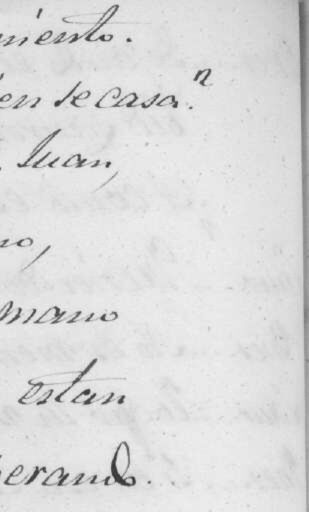 miento.
en se casan
Juan,
no,
mano
estan
perand.